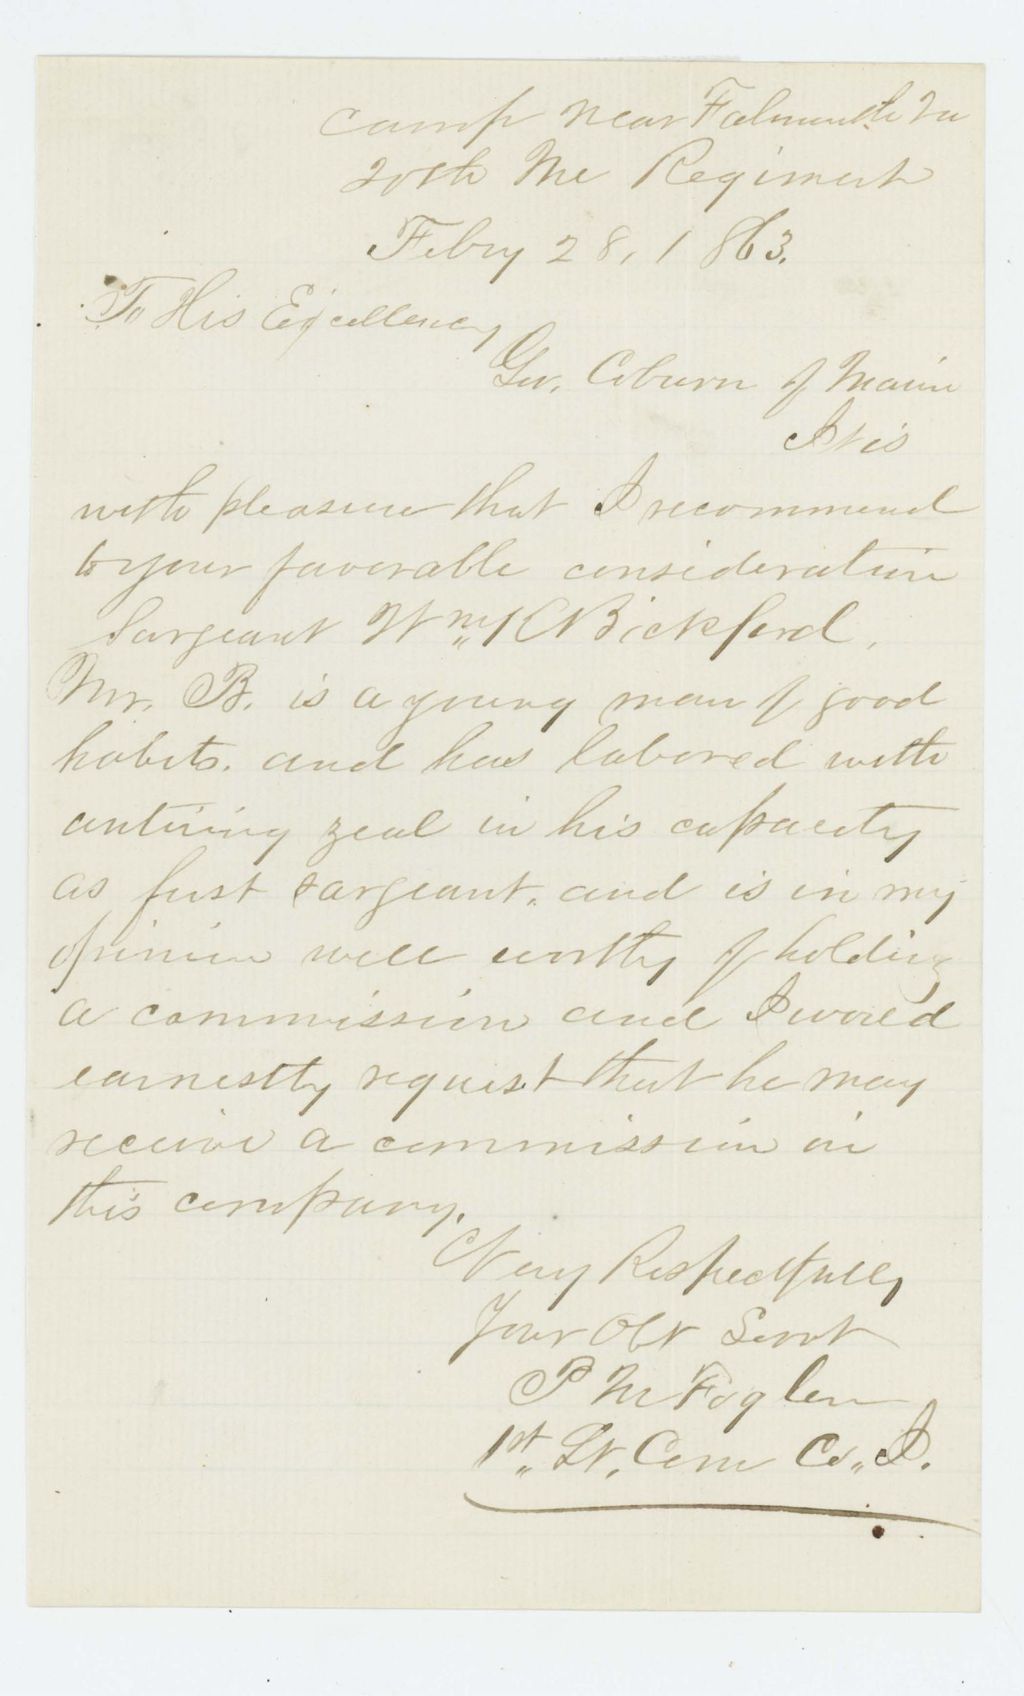 Camp near Falmouth Va
20th Me Regiment
Febry 28, 1863.
To His Excellency
Gov. Coburn of Maine
It is
with pleasure that I recommend
to your favorable consideration
Sargeant Wm K Bickford,
Mr. B. is a young man of good
habits. and has labored with
untiring zeal in his capacity
as first sargeant. and is in my
opinion well worthy of holding
a commission and I would
earnestly request that he may
receive a commission in
this company.
Very Respectfully
Your Obt Servt
P M Fogler
1st. Lt. Com Co. I.